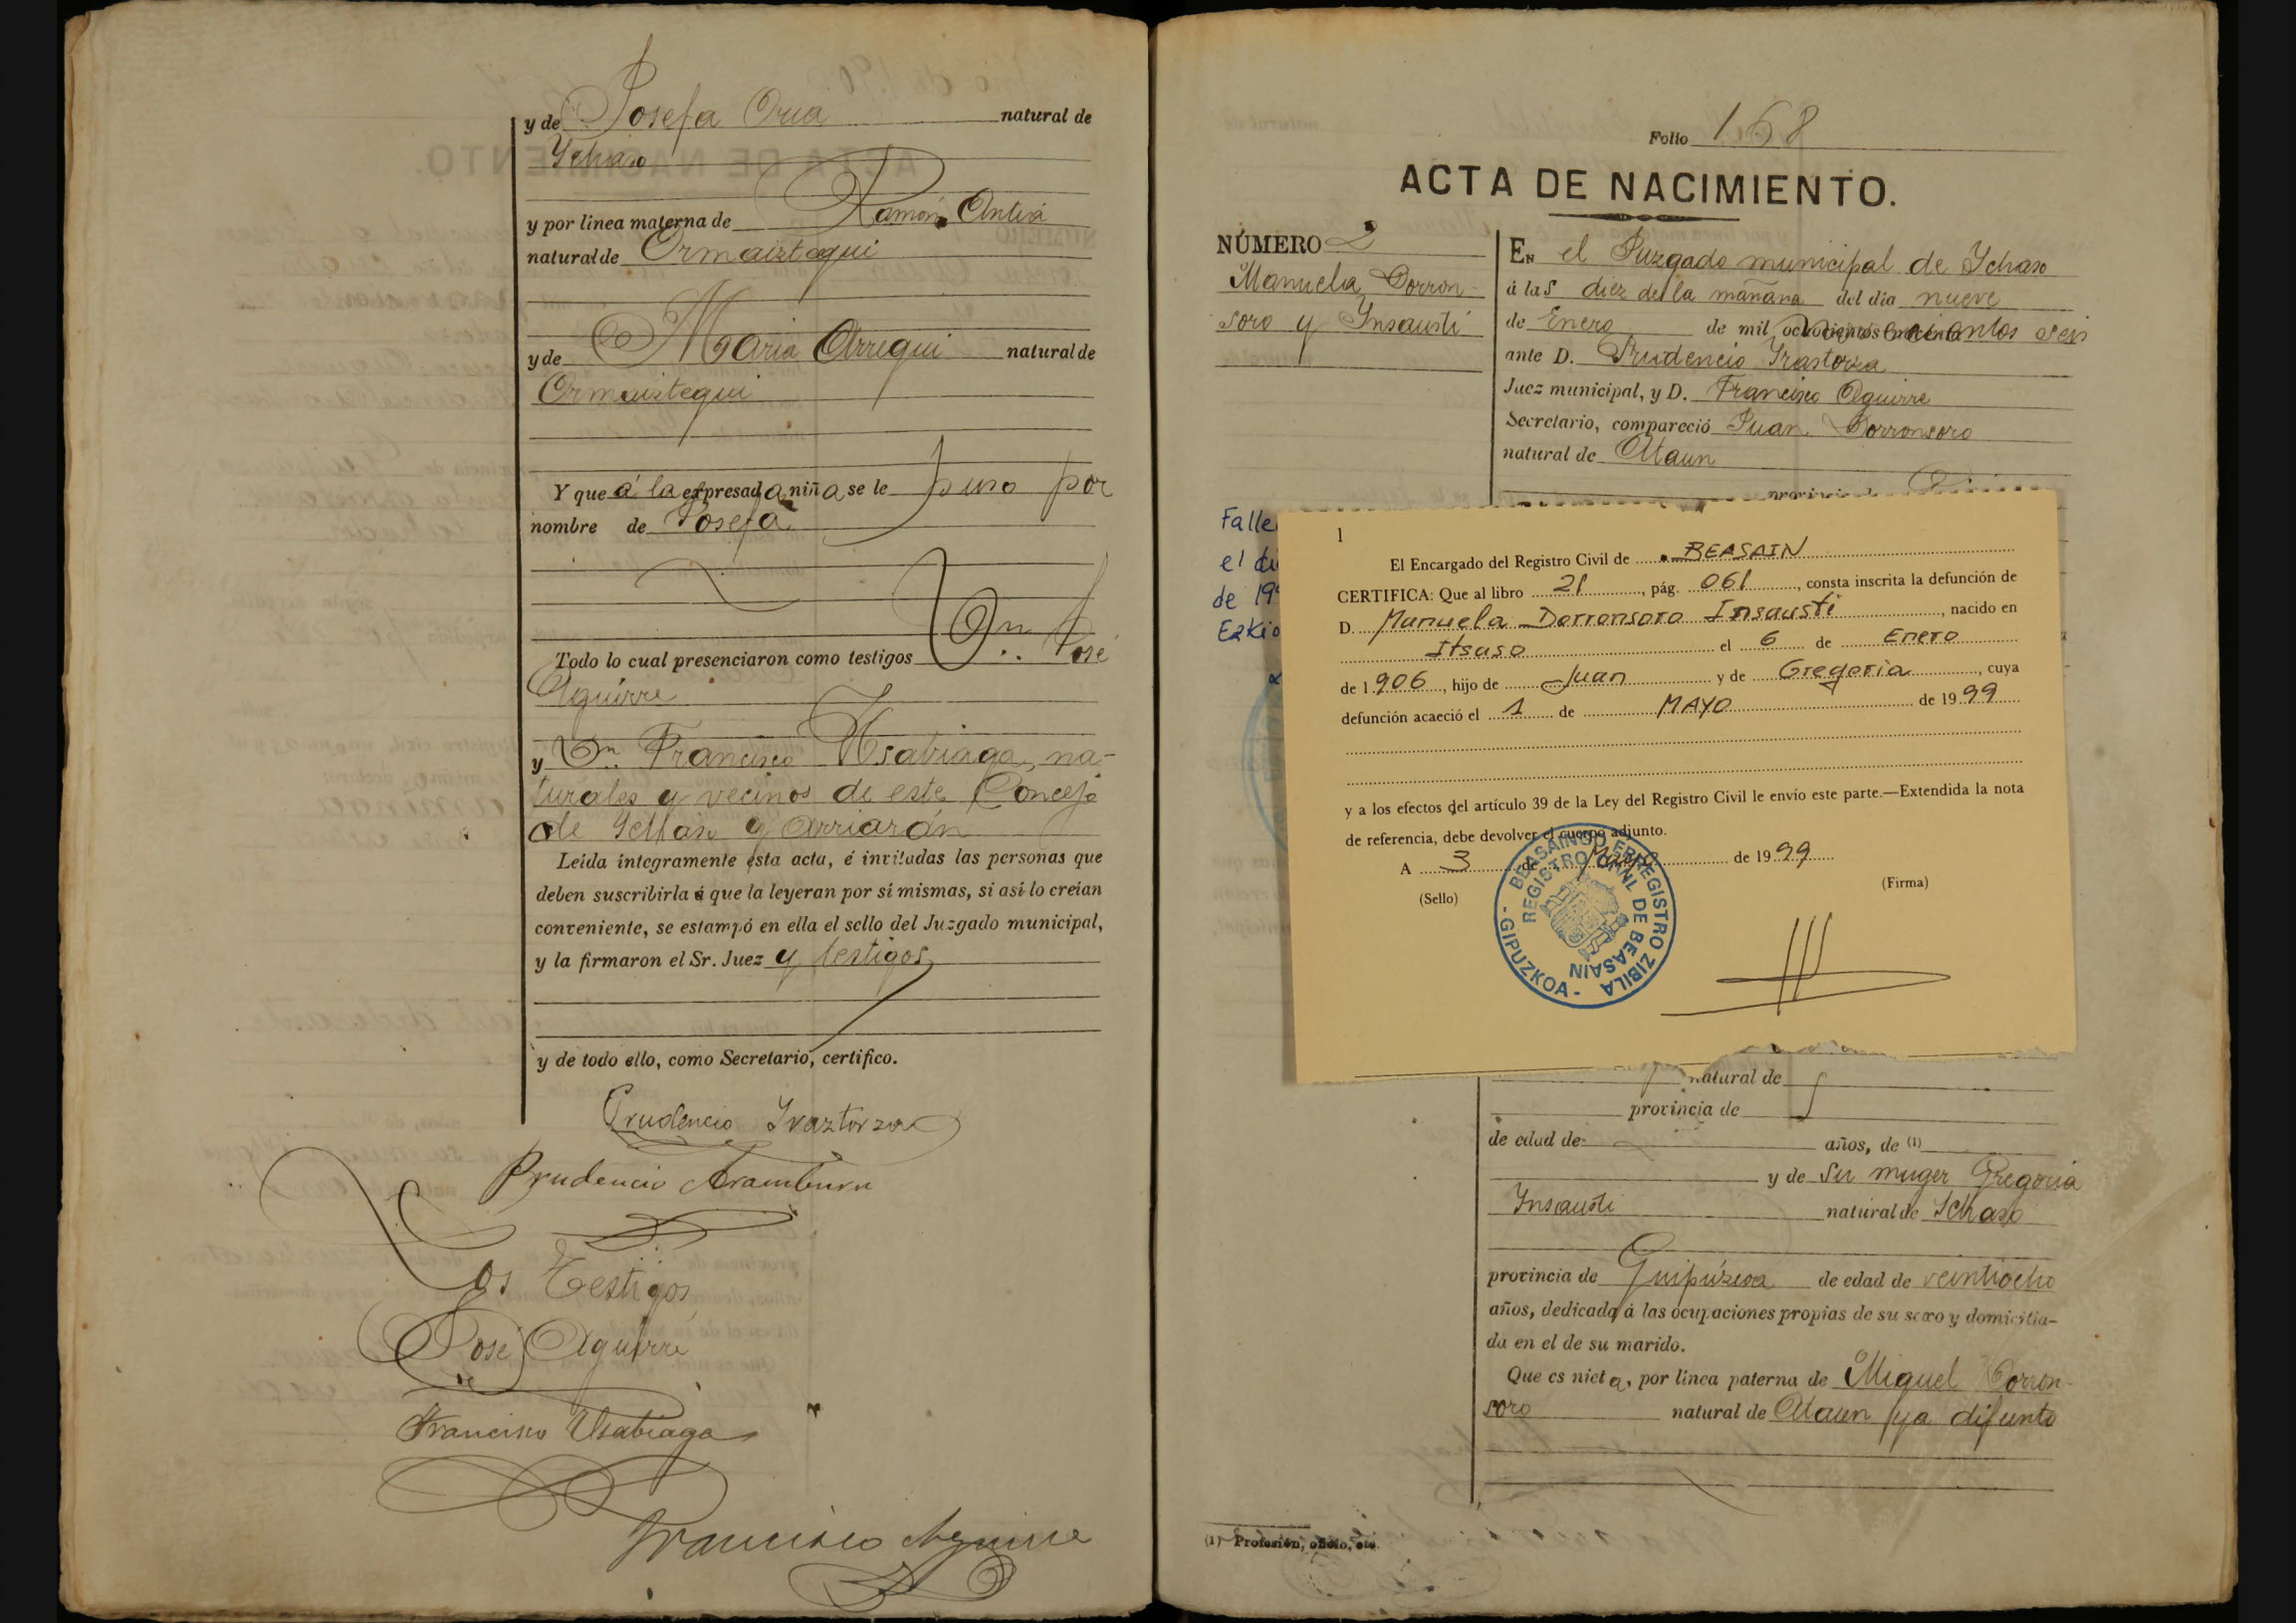 y de Josefa Oria natural de
Ychaso
y por linea materna de Ramón Antia
natural de Ormaiztegui
y de Maria Arregui natural de
Ormaiztegui
Y que á la expresada niña se le puso por
nombre de Josefa
Todo lo cual presenciaron como testigos Dn. José
Aguirre
y Dn. Francisco Usabiaga, na-
turales y vecinos de este Concejo
de Ychaso y Arriarán
Leida íntegramente esta acta, é invitadas las personas que
deben suscribirla á que la leyeran por sí mismas, si así lo creían
conveniente, se estampó en ella el sello del Juzgado municipal,
y la firmaron el Sr. Juez y testigos
y de todo ello, como Secretario, certifico.
Prudencio Yraztorza
Prudencio Aramburu
Los Testigos
José Aguirre
de
Francisco Usabiaga
Francisco Aguirre
Folio 168
ACTA DE NACIMIENTO.
NÚMERO 2
Manuela Dorron-
soro y Insausti
EN el Juzgado municipal de Ychaso
á las diez de la mañana del dia nueve
de Enero de mil novecientos seis
ante D. Prudencio Yrastorza
Juez municipal, y D. Francisco Aguirre
Secretario, compareció Juan Dorronsoro
natural de Ataun
provincia de
Falle
el di
de 199
Ezkio
1
El Encargado del Registro Civil de BEASAIN
CERTIFICA: Que al libro 21, pág. 061, consta inscrita la defunción de
D. Manuela Dorronsoro Insausti, nacido en
Itsaso el 6 de Enero
de 1906, hijo de Juan y de Gregoria, cuya
defunción acaeció el 1 de MAYO de 1999
y a los efectos del artículo 39 de la Ley del Registro Civil le envío este parte.—Extendida la nota
de referencia, debe devolver el cuerpo adjunto.
A 3 de Mayo de 1999
(Sello)
(Firma)
BEASAINGO ERREGISTRO ZIBILA - GIPUZKOA -
REGISTRO CIVIL DE BEASAIN
natural de
provincia de
de edad de años, de (1)
y de su muger Gregoria
Insausti natural de Ychaso
provincia de Guipúzcoa de edad de veintiocho
años, dedicada á las ocupaciones propias de su sexo y domicilia-
da en el de su marido.
Que es nieta, por linea paterna de Miguel Dorron-
soro natural de Ataun ya difunto
(1) Profesión, oficio, etc.